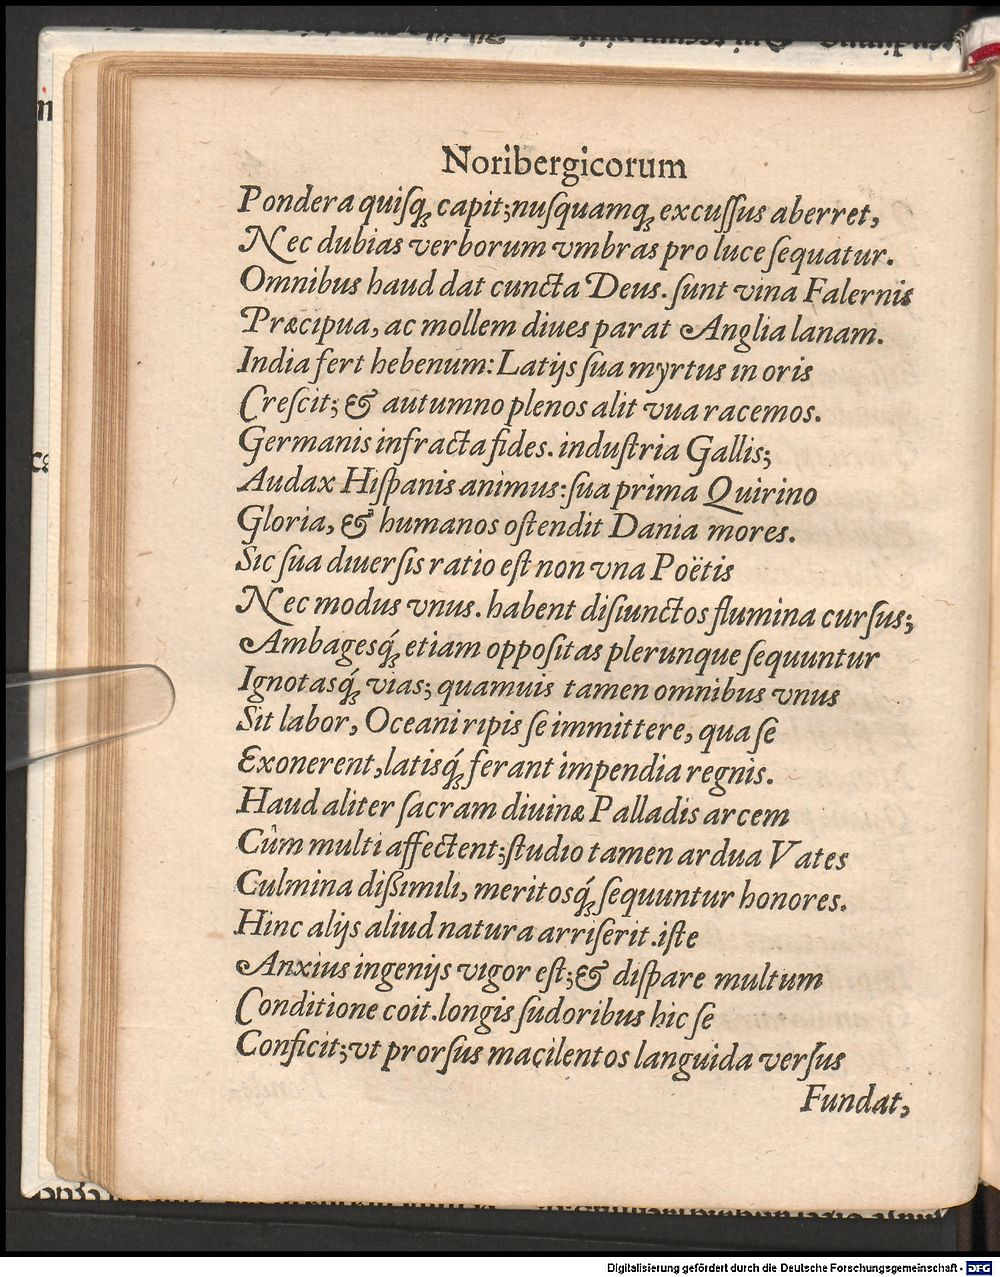 Noribergicorum
Pondera quiſq; capit; nuſquamq; excuſſus aberret,
Nec dubias verborum vmbras pro luce ſequatur.
Omnibus haud dat cuncta Deus. ſunt vina Falernis
Præcipua, ac mollem diues parat Anglia lanam.
India fert hebenum: Latijs ſua myrtus in oris
Creſcit; & autumno plenos alit vua racemos.
Germanis infracta fides. induſtria Gallis;
Audax Hiſpanis animus: ſua prima Quirino
Gloria, & humanos oſtendit Dania mores.
Sic ſua diuerſis ratio eſt non vna Poëtis
Nec modus vnus. habent diſiunctos flumina curſus;
Ambagesq́; etiam oppoſitas plerunque ſequuntur
Ignotasq́; vias; quamuis tamen omnibus vnus
Sit labor, Oceani ripis ſe immittere, qua ſe
Exonerent, latisq́; ferant impendia regnis.
Haud aliter ſacram diuinæ Palladis arcem
Cûm multi affectent; ſtudio tamen ardua Vates
Culmina dißimili, meritosq́; ſequuntur honores.
Hinc alijs aliud natura arriſerit. iſte
Anxius ingenijs vigor eſt; & diſpare multum
Conditione coit. longis ſudoribus hic ſe
Conficit; vt prorſus macilentos languida verſus
Fundat,
Digitalisierung gefördert durch die Deutsche Forschungsgemeinschaft - DFG